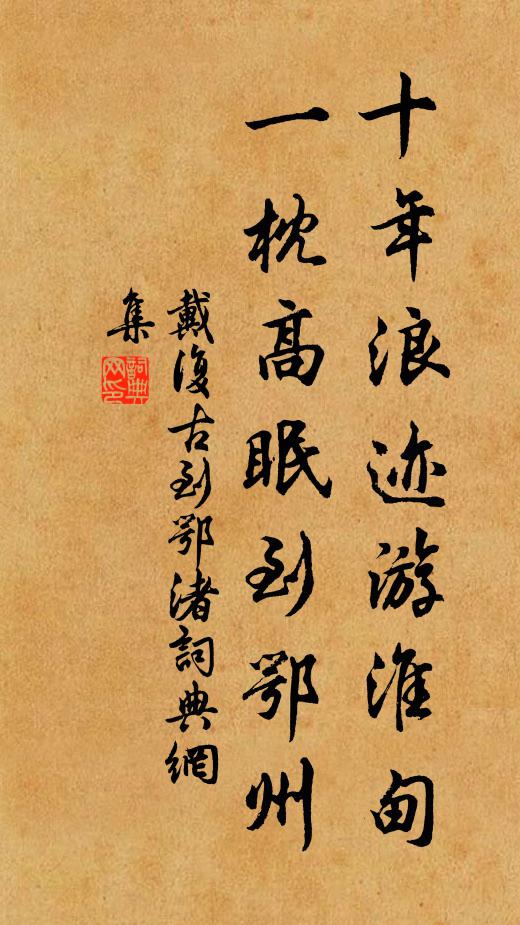 十年浪迹游淮甸
一枕高眠到鄂州
戴復古到鄂渚詞典網
集
詞典網印